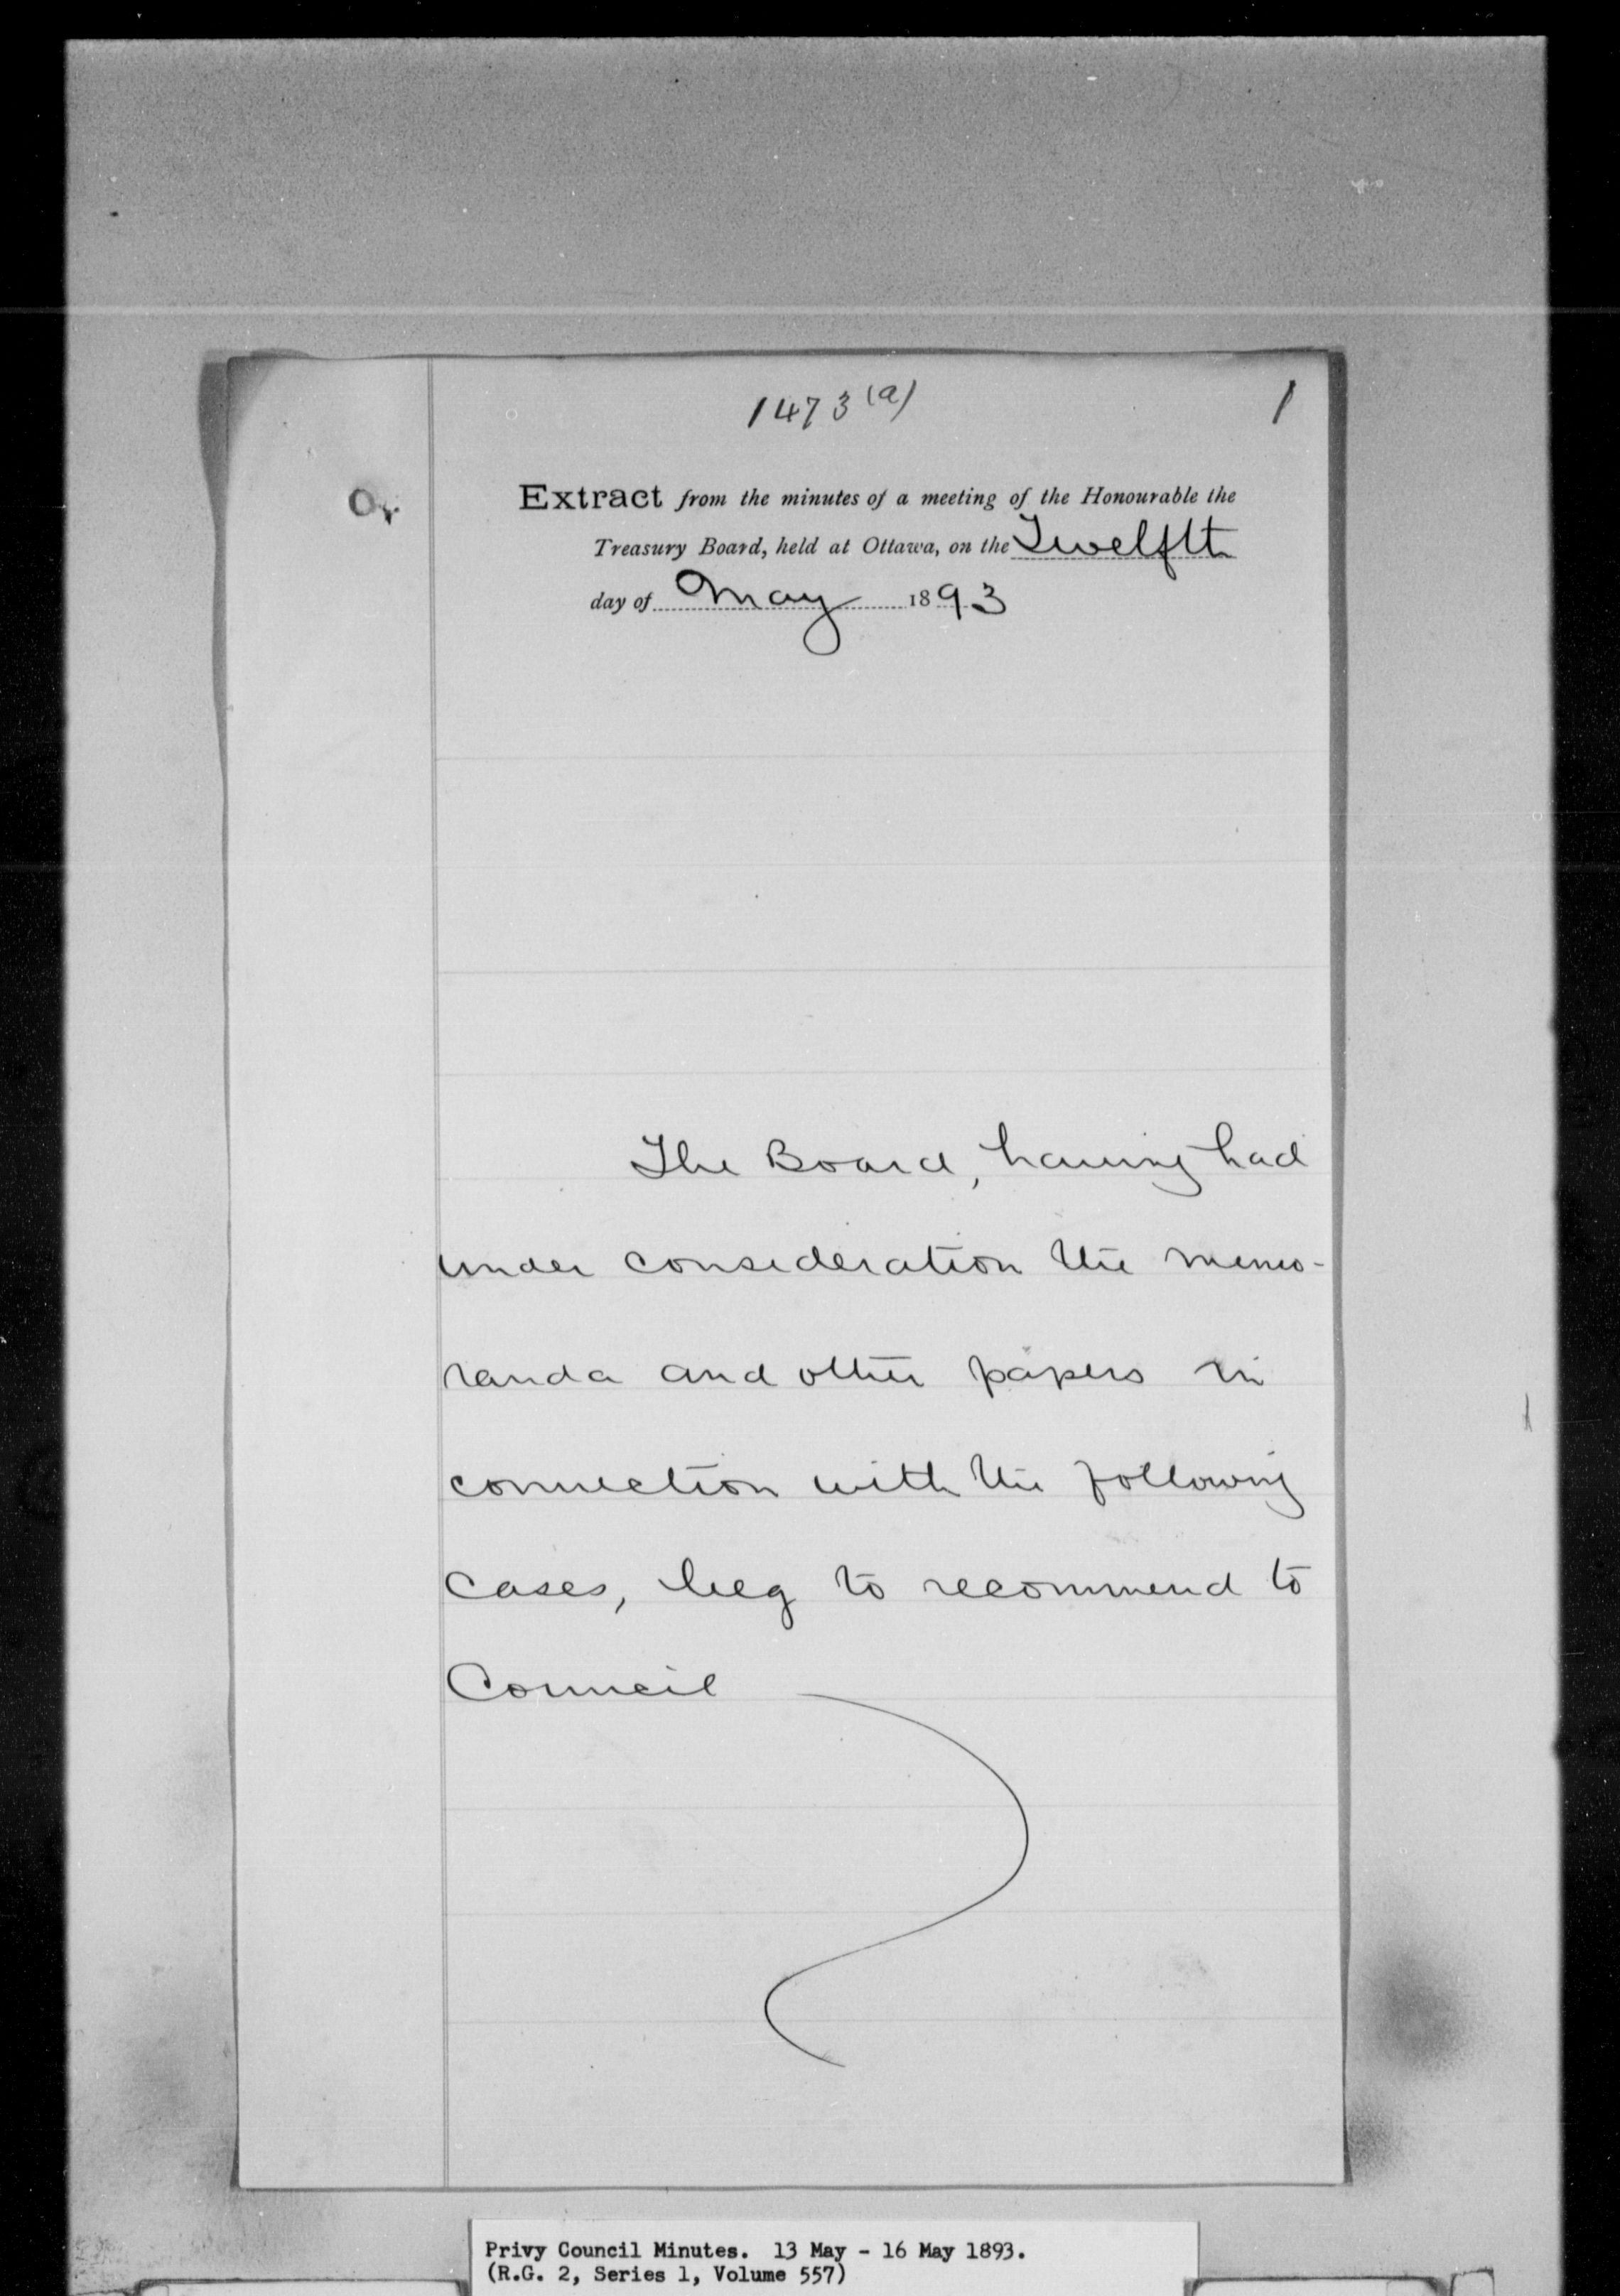 1473 (a)
1
Extract from the minutes of a meeting of the Honourable the
Treasury Board, held at Ottawa, on the Twelfth
day of May 1893
The Board, having had
under consideration the memo-
randa and other papers in
connection with the following
cases, beg to recommend to
Council
Privy Council Minutes. 13 May - 16 May 1893.
(R.G. 2, Series 1, Volume 557)